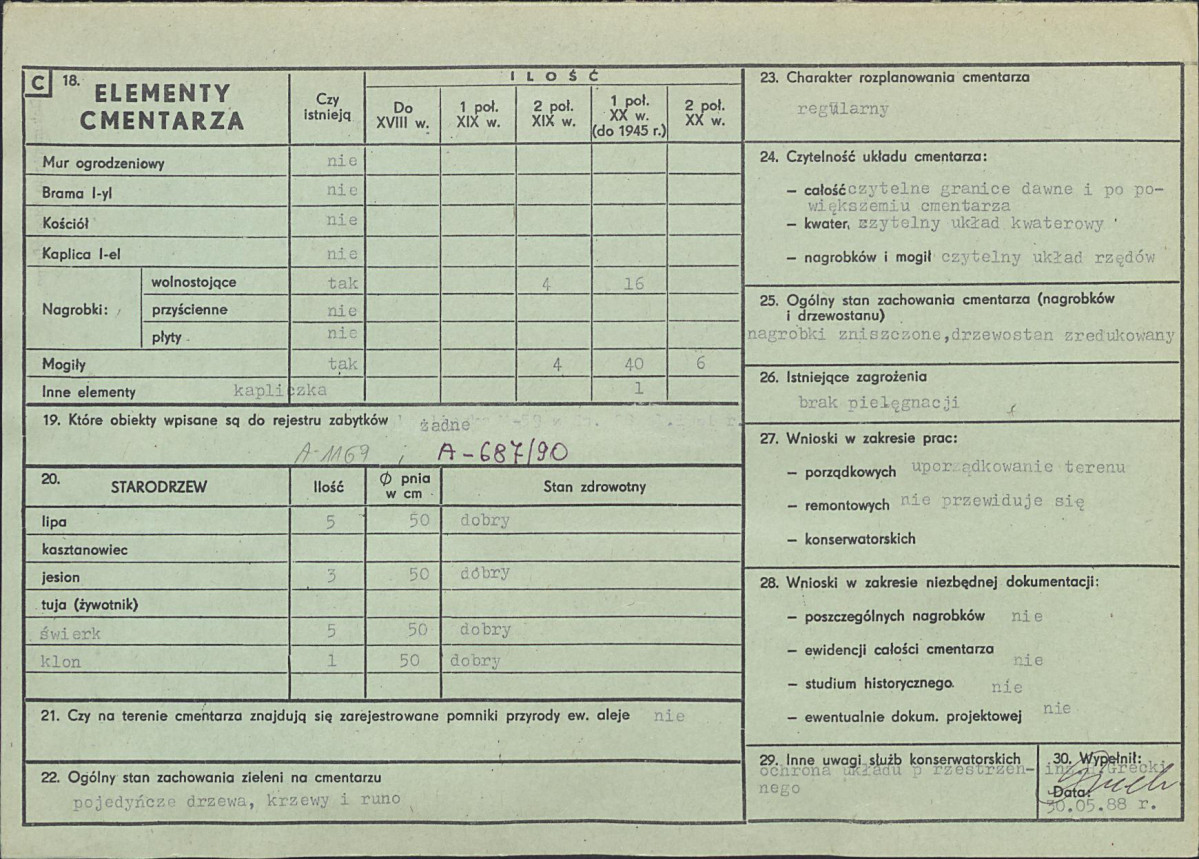 C 18. ELEMENTY
CMENTARZA
Czy
istnieją
ILOŚĆ
Do
XVIII w.
1 poł.
XIX w.
2 poł.
XIX w.
1 poł.
XX w.
(do 1945 r.)
2 poł.
XX w.
Mur ogrodzeniowy nie
Brama I-yl nie
Kościół nie
Kaplica I-el nie
Nagrobki:
wolnostojące tak 4 16
przyścienne nie
płyty nie
Mogiły tak 4 40 6
Inne elementy kapliczka 1
19. Które obiekty wpisane są do rejestru zabytków żadne
A-1169 ; A-687/90
20. STARODRZEW Ilość Ø pnia
w cm
Stan zdrowotny
lipa 5 50 dobry
kasztanowiec
jesion 3 50 dobry
tuja (żywotnik)
świerk 5 50 dobry
klon 1 50 dobry
21. Czy na terenie cmentarza znajdują się zarejestrowane pomniki przyrody ew. aleje nie
22. Ogólny stan zachowania zieleni na cmentarzu
pojedyńcze drzewa, krzewy i runo
23. Charakter rozplanowania cmentarza
regularny
24. Czytelność układu cmentarza:
– całość czytelne granice dawne i po po-
większemiu cmentarza
– kwater, czytelny układ kwaterowy
– nagrobków i mogił czytelny układ rzędów
25. Ogólny stan zachowania cmentarza (nagrobków
i drzewostanu)
nagrobki zniszczone,drzewostan zredukowany
26. Istniejące zagrożenia
brak pielęgnacji
27. Wnioski w zakresie prac:
– porządkowych uporządkowanie terenu
– remontowych nie przewiduje się
– konserwatorskich
28. Wnioski w zakresie niezbędnej dokumentacji:
– poszczególnych nagrobków nie
– ewidencji całości cmentarza nie
– studium historycznego nie
– ewentualnie dokum. projektowej nie
29. Inne uwagi służb konserwatorskich
ochrona układu p rzestrzen-
nego
30. Wypełnił:
Grecki
Data:
30.05.88 r.